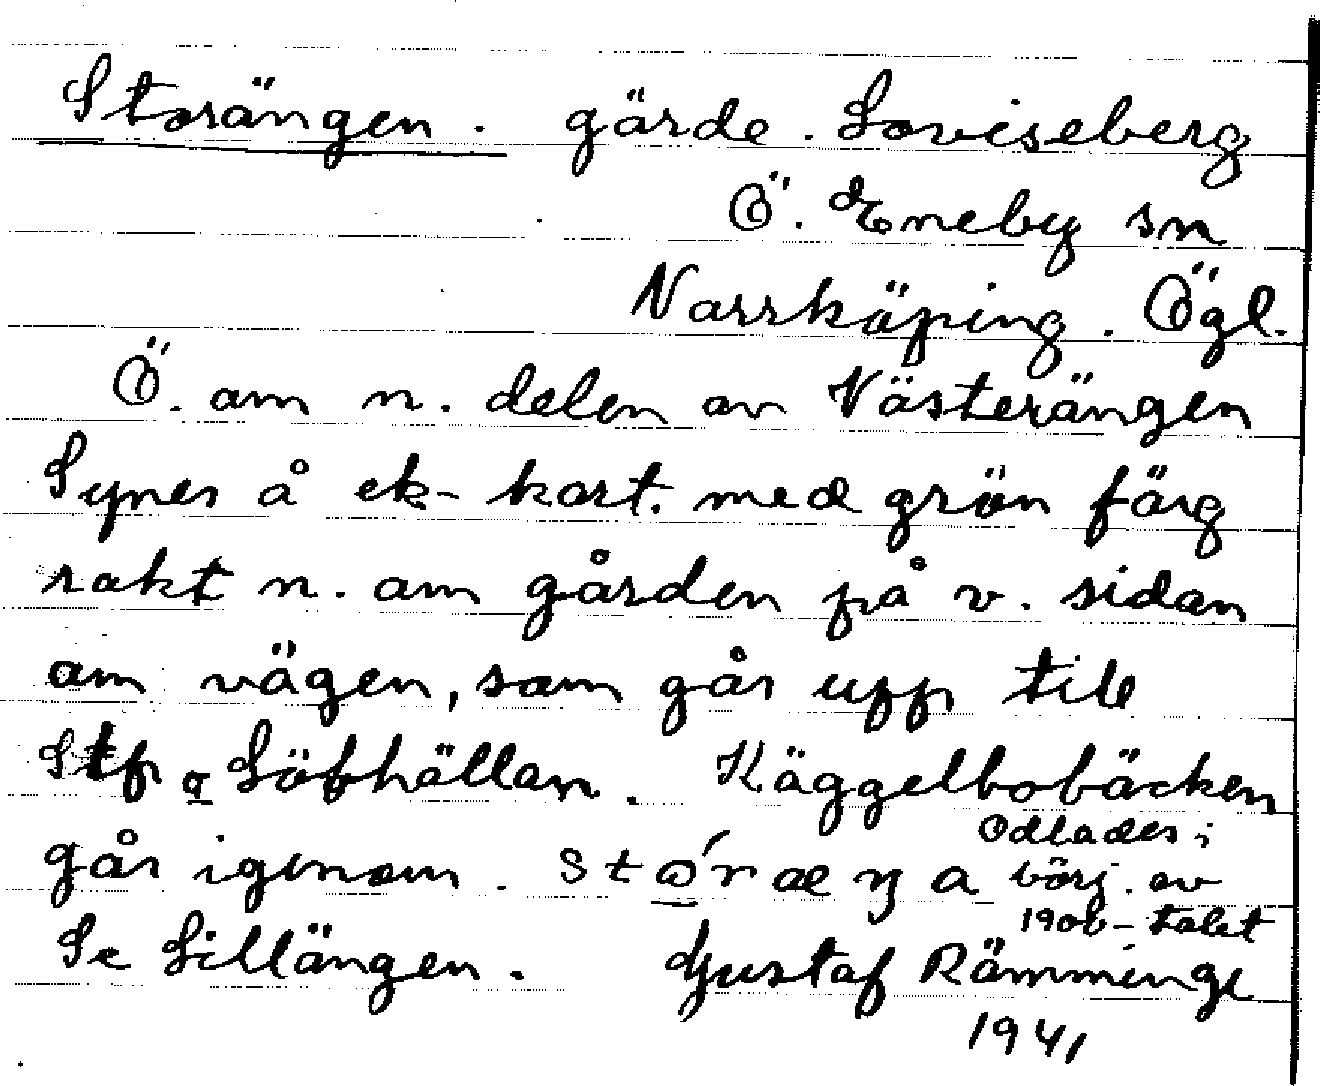 Storängen. gärde. Loviseberg
Ö. Eneby sn
Norrköping. Ögl.
Ö. om n. delen av Västerängen
Synes å ek-kort. med grön färg
rakt n. om gården på v. sidan
om vägen, som går upp till
Stp a Löfhällan. Käggelbobäcken
går igenom. stóræŋa Odlades i
börj. av
1900-talet
Se Lillängen. Gustaf Rämminge
1941